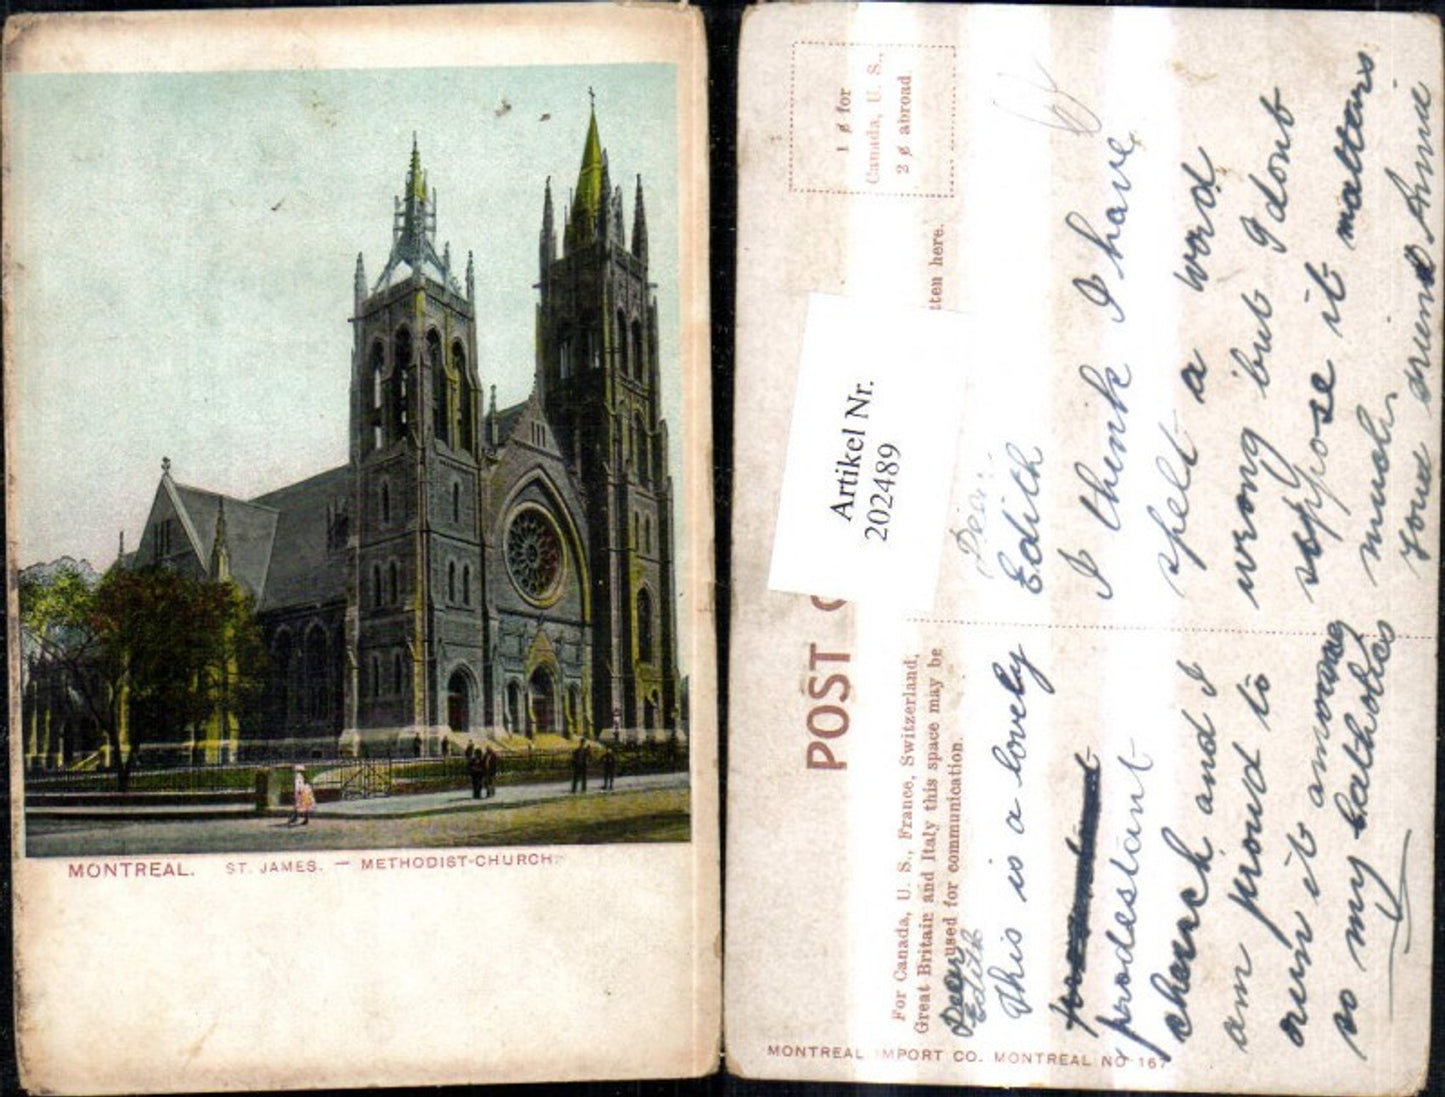 MONTREAL. ST. JAMES. — METHODIST-CHURCH.
1 ¢ for
Canada, U. S.,
2 ¢ abroad
tten here.
Artikel Nr.
202489
POST C
For Canada, U. S., France, Switzerland,
Great Britain and Italy this space may be
used for communication.
Dear
Edith
This is a lovely
prodestant
church and I
am proud to
own it
so my Catholics
Dear
Edith
I think I have
spelt a word
wrong but I dont
suppose it matters
much.
your friend Annie
MONTREAL IMPORT CO. MONTREAL NO 167